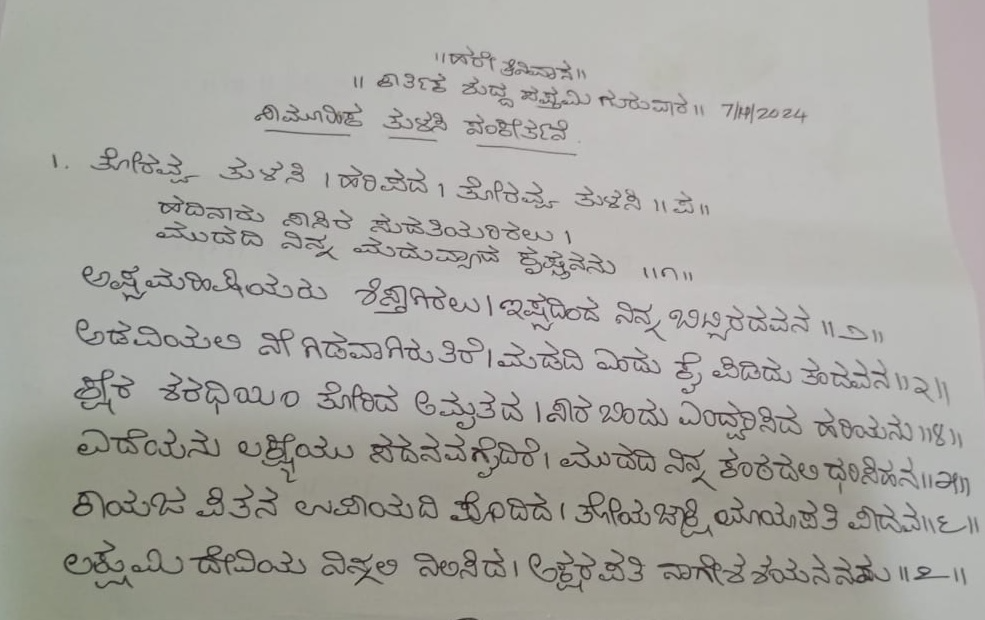 ॥ಹರೇ ಶ್ರೀನಿವಾಸ॥
॥ ಕಾರ್ತಿಕ ಶುದ್ಧ ಸಪ್ತಮಿ ಗುರುವಾರ॥ 7/11/2024
ಸಾಮೂಹಿಕ ತುಳಸಿ ಸಂಕೀರ್ತನೆ.
1. ತೋರವ್ವ ತುಳಸಿ । ಹರಿಪದ । ತೋರವ್ವ ತುಳಸಿ ॥ಪ॥
ಹದಿನಾರು ಸಾಸಿರ ಸುದತಿಯರಿರಲು ।
ಮುದದಿ ನಿನ್ನ ಮದುವ್ಯಾದ ಕೃಷ್ಣನನು ॥೧॥
ಅಷ್ಟಮಹಿಷಿಯರು ಶೆಷ್ಟಾಗಿರಲು । ಇಷ್ಟದಿಂದ ನಿನ್ನ ಬಿಟ್ಟಿರದವನ ॥೨॥
ಅಡವಿಯಲಿ ನೀ ಗಿಡವಾಗಿರುತಿರೆ । ಮಡದಿ ಎಂದು ಕೈ ಪಿಡಿದು ತಂದವನ ॥೩॥
ಕ್ಷೀರ ಶರಧಿಯಿಂ ತೋರಿದ ಅಮೃತದ । ಸಾರ ಬಿಂದು ಎಂದ್ಹಾಸಿದ ಹರಿಯನು ॥೪॥
ಎದೆಯನು ಲಕ್ಷ್ಮೀಯು ಸದನವಗೈದಿರೆ । ಮುದದಿ ನಿನ್ನ ಕಂಠದಲಿ ಧರಿಸಿಹನ ॥೫॥
ಕಾಯಜ ಪಿತನ ಉಪಾಯದಿ ಪೊಂದಿದ । ತೋಯಜಾಕ್ಷಿ ಮಾಯಪತಿ ಪಾದವ ॥೬॥
ಲಕ್ಷುಮಿ ದೇವಿಯ ನಿನ್ನಲಿ ನಿಲಿಸಿದ । ಅಕ್ಷರಪತಿ ನಾಗೇಶಶಯನನನು ॥೭॥